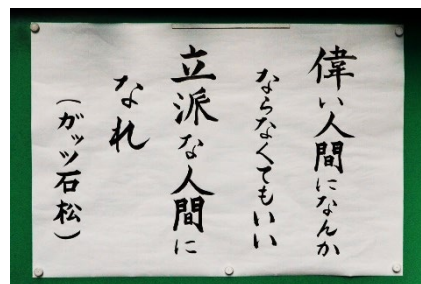 偉い人間になんか
ならなくてもいい
立派な人間に
なれ
（ガッツ石松）